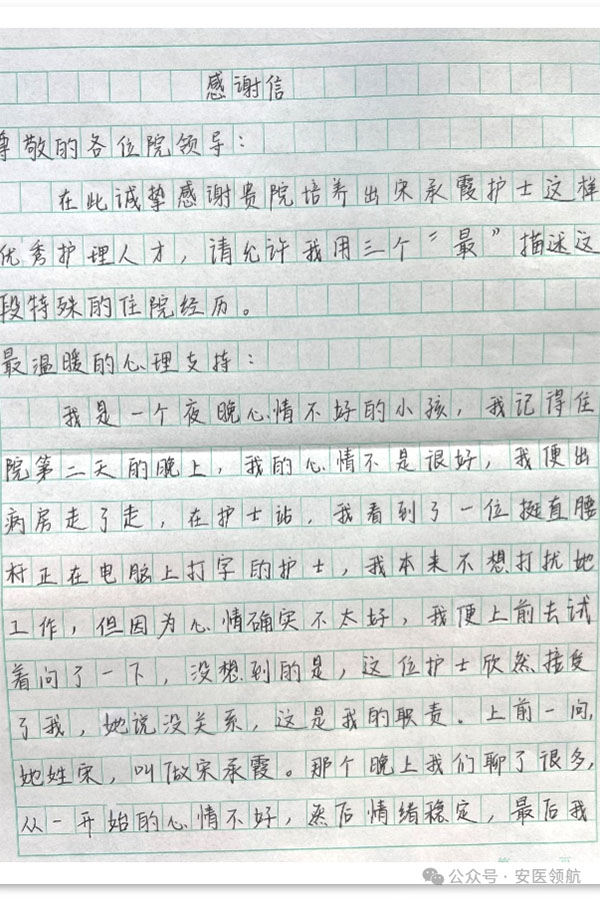 感谢信
尊敬的各位院领导：
在此诚挚感谢贵院培养出宋承霞护士这样
优秀护理人才，请允许我用三个“最”描述这
段特殊的住院经历。
最温暖的心理支持：
我是一个夜晚心情不好的小孩，我记得住
院第二天的晚上，我的心情不是很好，我便出
病房走了走，在护士站，我看到了一位挺直腰
杆正在电脑上打字的护士，我本来不想打扰她
工作，但因为心情确实不太好，我便上前去试
着问了一下，没想到的是，这位护士欣然接受
了我，她说没关系，这是我的职责。上前一问，
她姓宋，叫做宋承霞。那个晚上我们聊了很多，
从一开始的心情不好，然后情绪稳定，最后我
公众号·安医领航